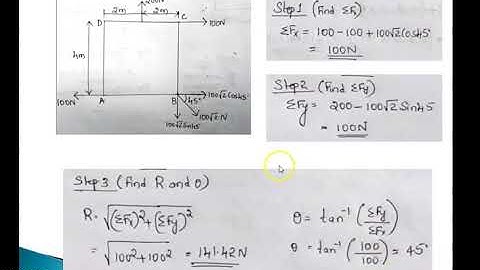 200N
2m 2m
D C 100N
4m
100N A B 45° 100√2 Cos45
100√2 N
100√2 Sin45
Step1 (Find ΣFx)
ΣFx = 100-100+100√2 Cos45°
= 100N
Step2 (Find ΣFy)
ΣFy = 200-100√2 Sin45
= 100N
Step 3 (Find R and θ)
R = √(ΣFx)²+(ΣFy)²
= √100²+100² = 141.42N
θ = tan⁻¹ (ΣFy/ΣFx)
θ = tan⁻¹ (100/100) = 45°